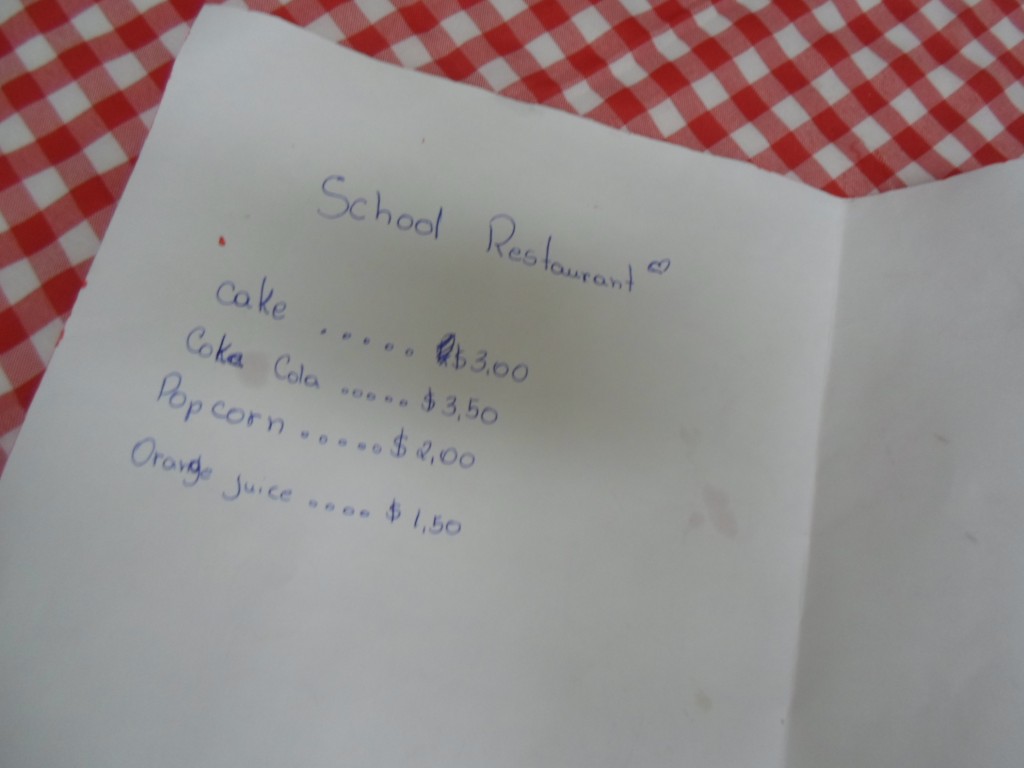 School Restaurant ♡
cake ..... $3,00
Coka Cola ..... $3,50
Popcorn ..... $2,00
Orange juice .... $1,50